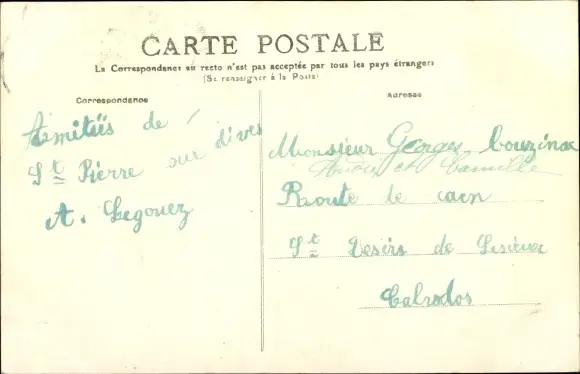 CARTE POSTALE
La Correspondance au recto n'est pas acceptée par tous les pays étrangers
(Se renseigner à la Poste)
Correspondance
Adresse
Amitiés de
St Pierre sur dives
A. Legouez
Monsieur Georges
et Camille
Route de Caen
St Desirs de Lisieux
Calvados